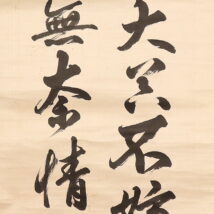 大公不
無奈情